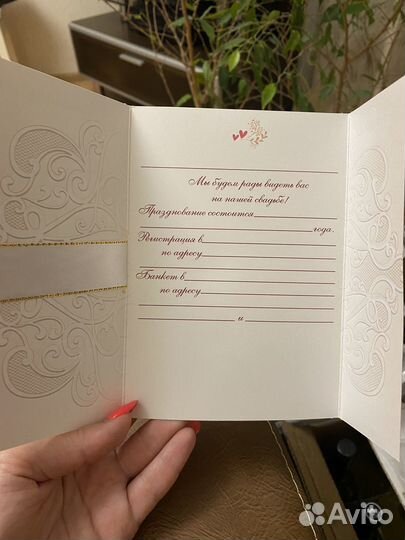 Мы будем рады видеть вас
на нашей свадьбе!
Празднование состоится
года.
Регистрация в
по адресу
Банкет в
по адресу
и
Avito